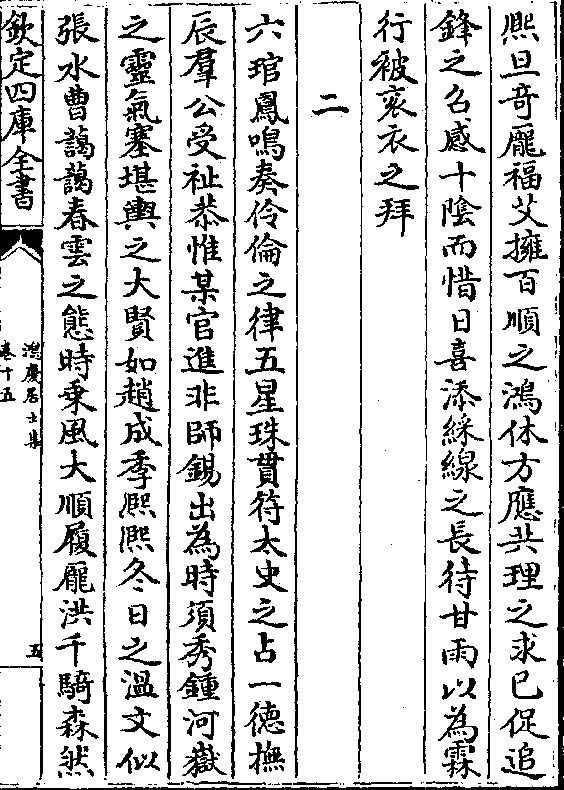 熈旦竒龎福艾擁百順之鴻休方應共理之求已促追
鋒之召感十陰而惜日喜添綵線之長待甘雨以為霖
行被衮衣之拜
二
六琯鳳鳴奏伶倫之律五星珠貫符太史之占一德撫
辰羣公受祉恭惟某官進非師錫出為時湏秀鍾河嶽
之靈氣塞堪輿之大賢如趙成季熈熈冬日之温文似
張水曹藹藹春雲之態時乗風大順履龎洪千騎森然
欽定四庫全書
鴻慶居士集
卷十五
五